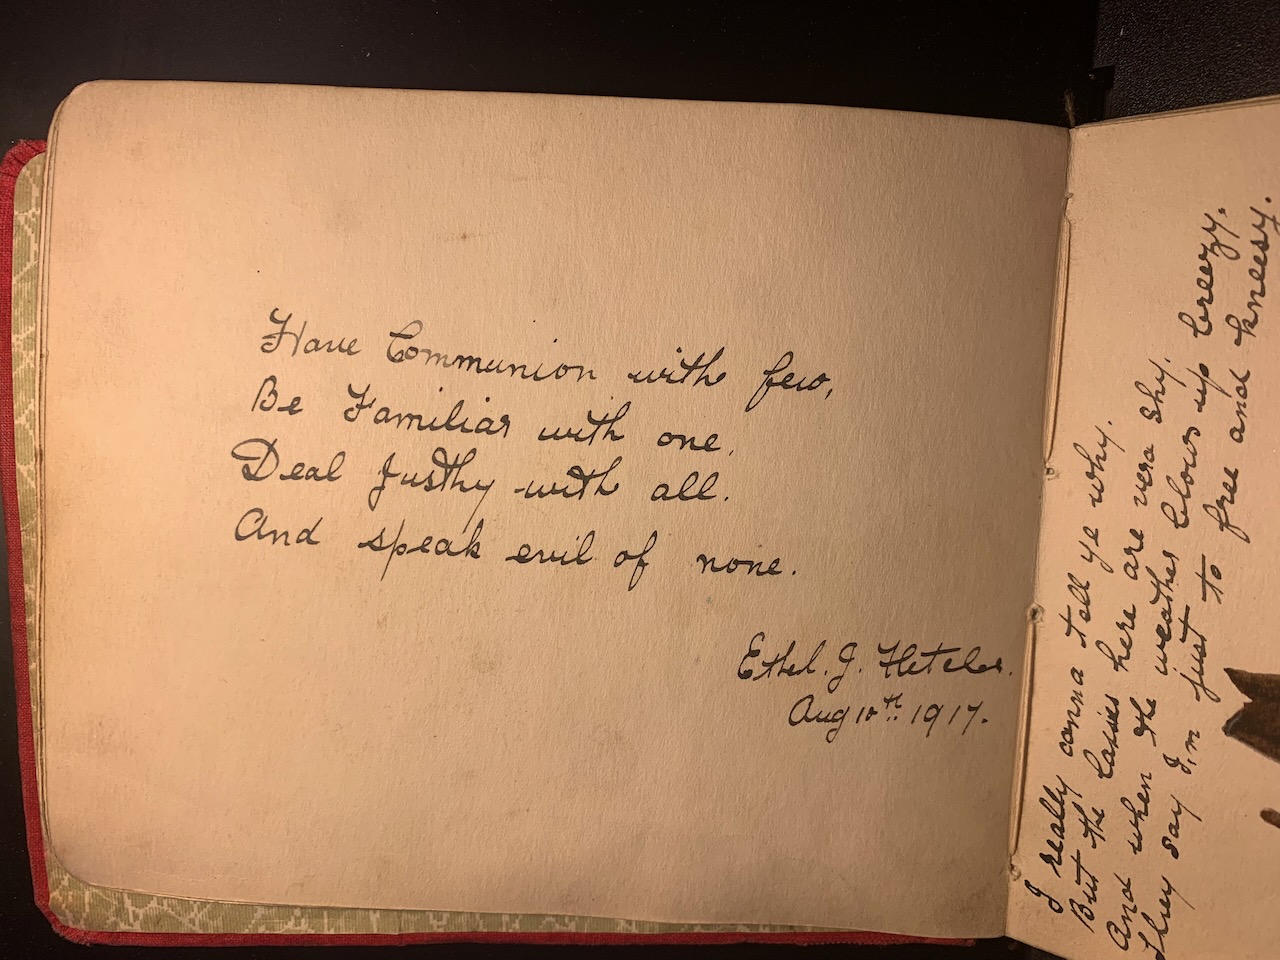 Have Communion with few,
Be Familiar with one,
Deal Justhy with all.
And speak evil of none.
Ethel. J. 
Aug 10th. 1917.
I really canna tell ye why.
But the lasies here are vera shy.
And when the weather blows up breezy.
They say I,m just to free and kneesy.